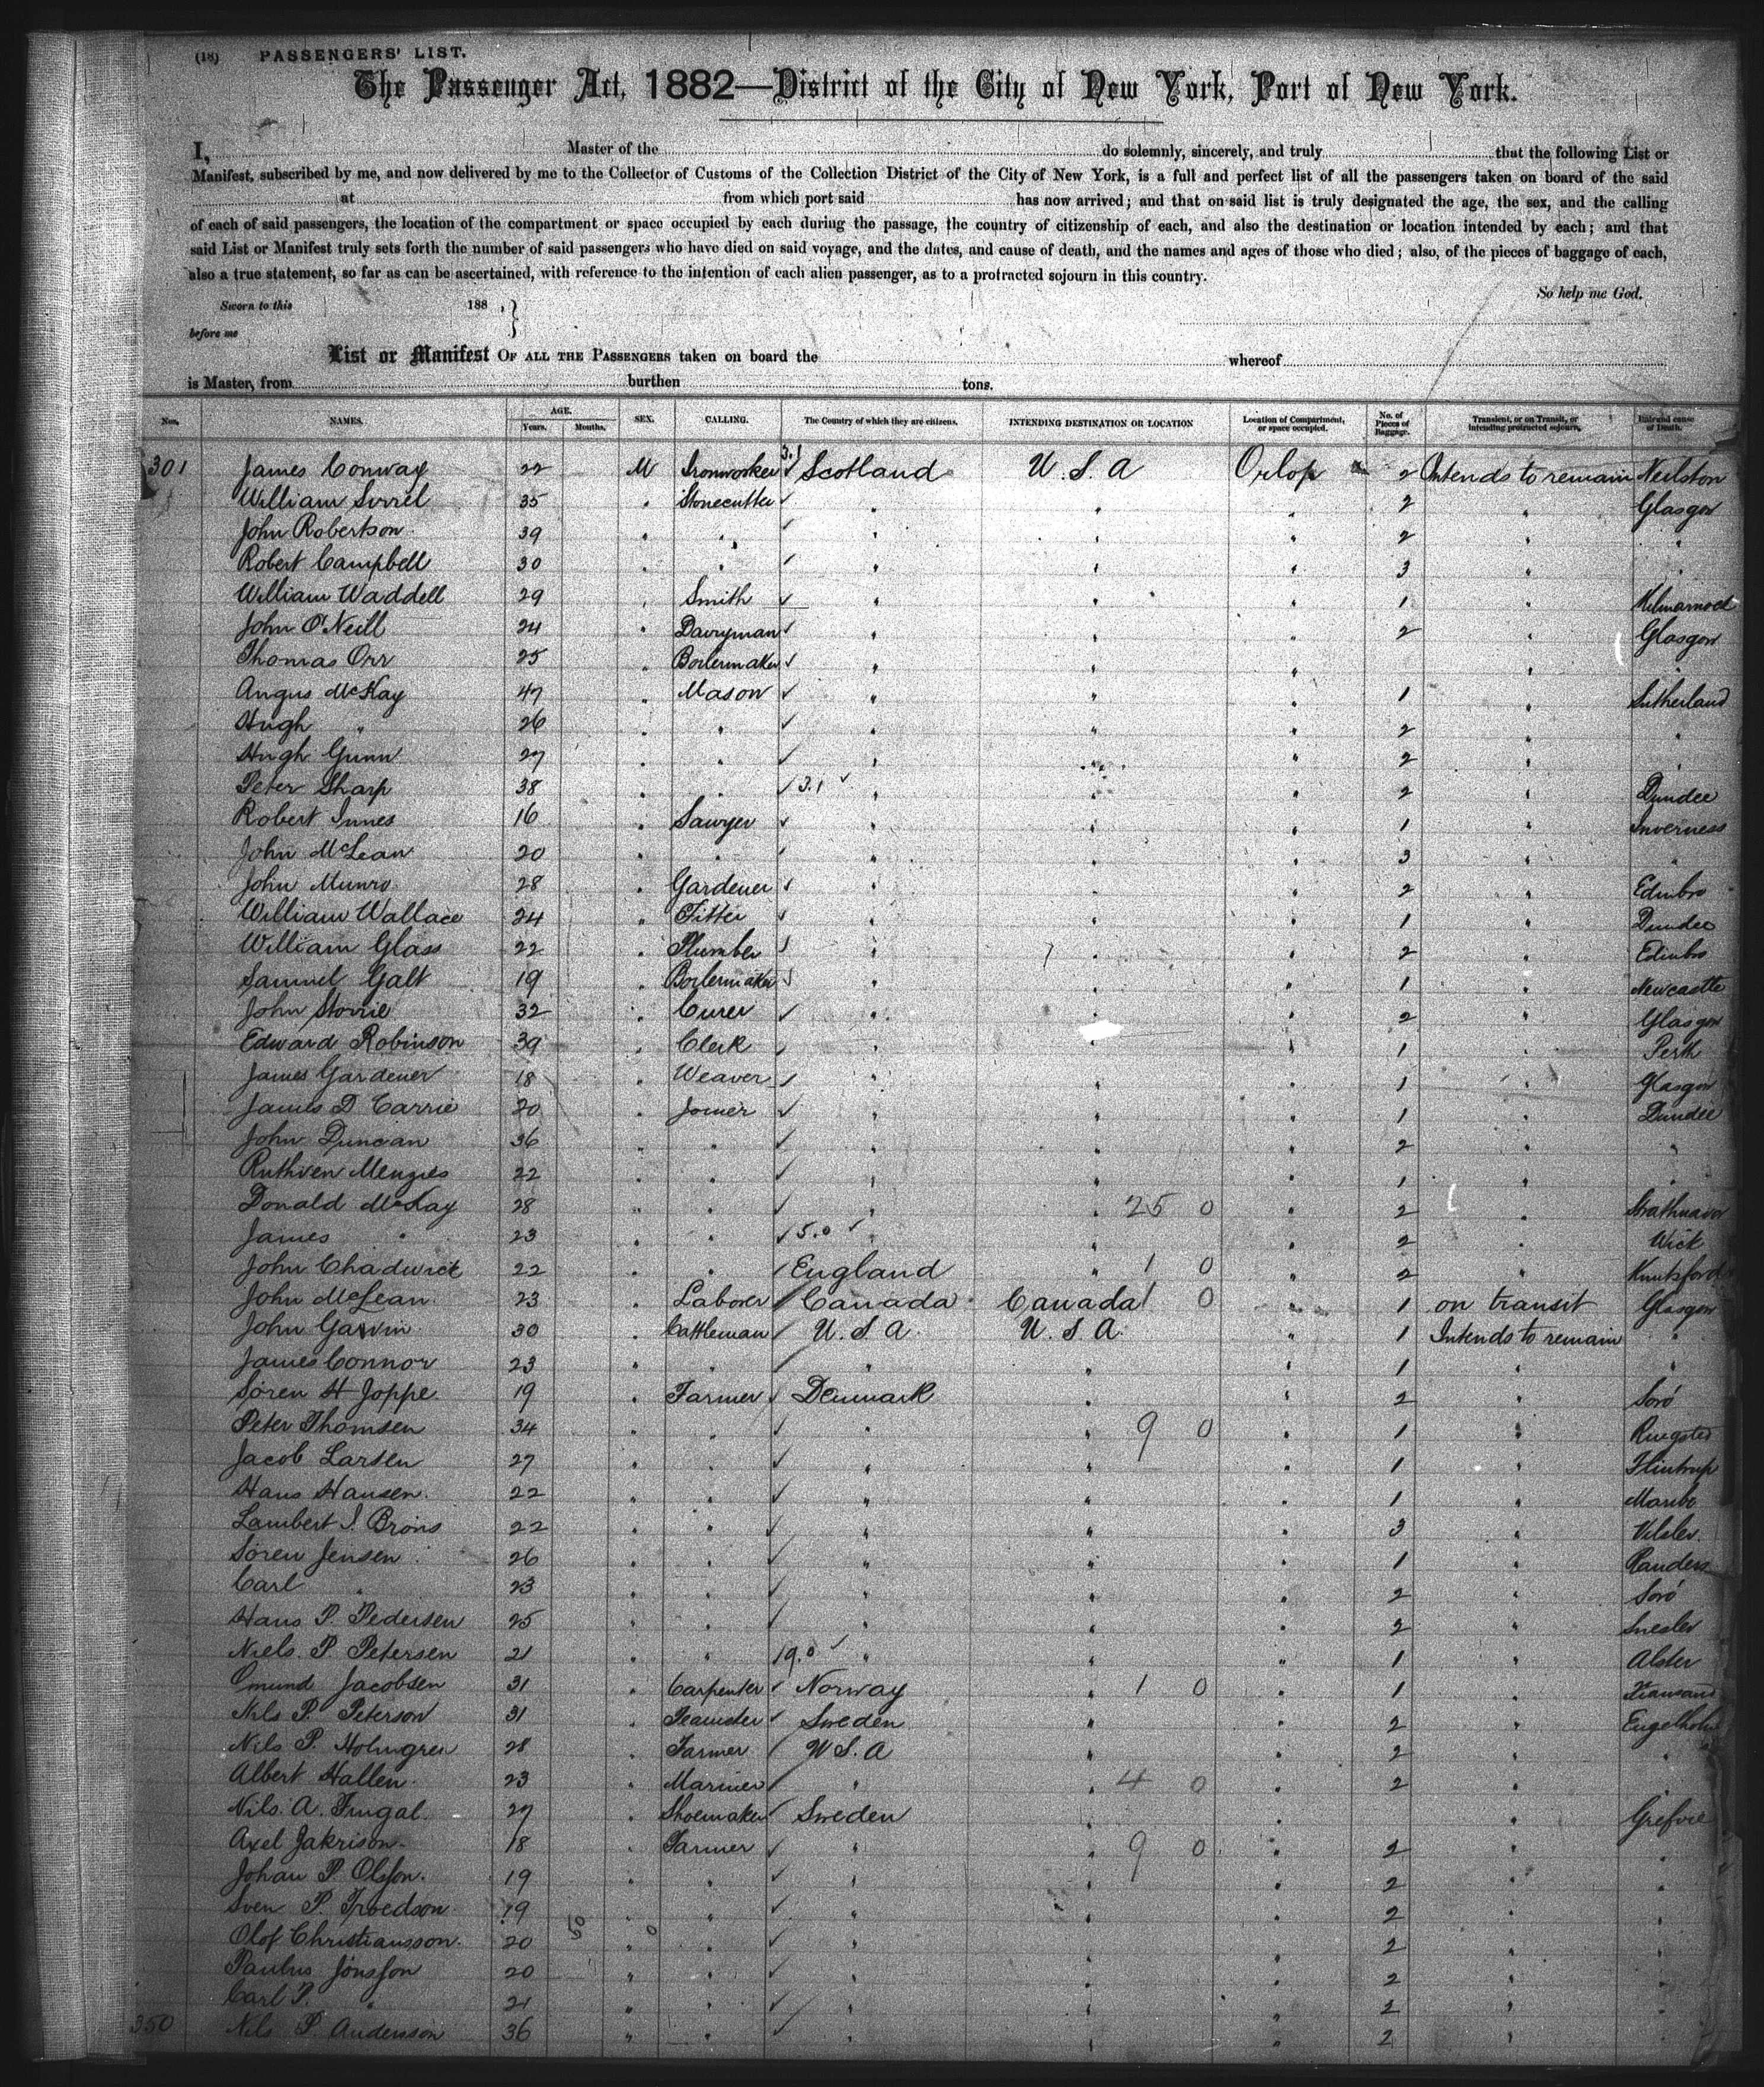 (18) PASSENGERS' LIST.
The Passenger Act, 1882—District of the City of New York, Port of New York.
I, Master of the do solemnly, sincerely, and truly that the following List or
Manifest, subscribed by me, and now delivered by me to the Collector of Customs of the Collection District of the City of New York, is a full and perfect list of all the passengers taken on board of the said
at from which port said has now arrived; and that on said list is truly designated the age, the sex, and the calling
of each of said passengers, the location of the compartment or space occupied by each during the passage, the country of citizenship of each, and also the destination or location intended by each; and that
said List or Manifest truly sets forth the number of said passengers who have died on said voyage, and the dates, and cause of death, and the names and ages of those who died; also, of the pieces of baggage of each,
also a true statement, so far as can be ascertained, with reference to the intention of each alien passenger, as to a protracted sojourn in this country.
So help me God.
Sworn to this 188 , }
before me
List or Manifest OF ALL THE PASSENGERS taken on board the whereof
is Master, from burthen tons.
Nos. NAMES. AGE. Years. Months. SEX. CALLING. The Country of which they are citizens. INTENDING DESTINATION OR LOCATION Location of Compartment, or space occupied. No. of Pieces of Baggage. Transient, or on Transit, or intending protracted sojourn. Date and cause of Death.
301 James Conway 22 M Ironworker 3.1 ✓ Scotland U.S.A Orlop 2 Intends to remain Neilston
William 35 " Stonecutter ✓ " " " 2 " Glasgow
John Robertson 39 " " ✓ " " " 2 " "
Robert Campbell 30 " " ✓ " " " 3 " "
William Waddell 29 " Smith ✓ " " " 1 " Kilmarnock
John O'Neill 24 " Dairyman ✓ " " " 2 " Glasgow
Thomas Orr 25 " Boilermaker ✓ " " " " "
Angus McKay 47 " Mason ✓ " " " 1 " Sutherland
Hugh " 26 " " ✓ " " " 2 " "
Hugh Gunn 27 " " ✓ " " " 2 " "
Peter Sharp 38 " " ✓ 3.1 ✓ " " " 2 " Dundee
Robert Innes 16 " Sawyer ✓ " " " 1 " Inverness
John McLean 20 " " ✓ " " " 3 " "
John Munro 28 " Gardener ✓ " " " 2 " Edinbro
William Wallace 24 " Fitter ✓ " " " 1 " Dundee
William Glass 22 " Plumber ✓ " " " 2 " Edinbro
Samuel Galt 19 " Boilermaker ✓ " " " 1 " Newcastle
John Storrie 32 " Curer ✓ " " " 2 " Glasgow
Edward Robinson 39 " Clerk ✓ " " " 1 " Perth
James Gardener 18 " Weaver ✓ " " " 1 " Glasgow
James D Carrie 20 " Joiner ✓ " " " 1 " Dundee
John Duncan 36 " " ✓ " " " 2 " "
Ruthven Menzies 22 " " ✓ " " " 1 " "
Donald McKay 28 " " ✓ " " 25 0 " 2 " Strathnaver
James " 23 " " ✓ 5.0 ✓ " " " 2 " Wick
John Chadwick 22 " " ✓ England " 1 0 " 2 " Knutsford
John McLean 23 " Laborer ✓ Canada Canada 1 0 " 1 on transit Glasgow
John Garvin 30 " Cattleman ✓ U.S.A. U.S.A. " 1 Intends to remain "
James Connor 23 " " ✓ " " " 1 " "
Sören H Joppe 19 " Farmer ✓ Denmark " " 2 " Sorö
Peter Thomsen 34 " " ✓ " " 9 0 " 1 " Ringsted
Jacob Larsen 27 " " ✓ " " " 1 " Flintrup
Hans Hansen 22 " " ✓ " " " 1 " Maribo
Lambert J. Brons 22 " " ✓ " " " 3 " Vilslev
Sören Jensen 26 " " ✓ " " " 1 " Randers
Carl " 23 " " ✓ " " " 2 " Sorö
Hans P. Pedersen 25 " " ✓ " " " 2 "
Niels P. Petersen 21 " " 19.0 ✓ " " " 1 " Alster
Omund Jacobsen 31 " Carpenter ✓ Norway " 1 0 " 1 "
Nils P. Peterson 31 " Teamster ✓ Sweden " " 2 " Engelholm
Nils P. Holmgren 28 " Farmer ✓ U.S.A " " 2 " "
Albert Hallen 23 " Mariner ✓ " " 4 0 " 2 " "
Nils A. 27 " Shoemaker ✓ Sweden " " " Grefvie
Axel Jakrison 18 " Farmer ✓ " " 9 0 " 2 " "
Johan P. Olsson 19 " " ✓ " " " 2 " "
Sven P. Troedson 19 " " ✓ " " " 2 " "
Olof Christiansson 20 50 " 0 " ✓ " " " 2 " "
Paulus Jönsson 20 " " ✓ " " " 2 " "
Carl P. " 21 " " ✓ " " " 2 " "
350 Nils P. Andersson 36 " " ✓ " " " 2 " "